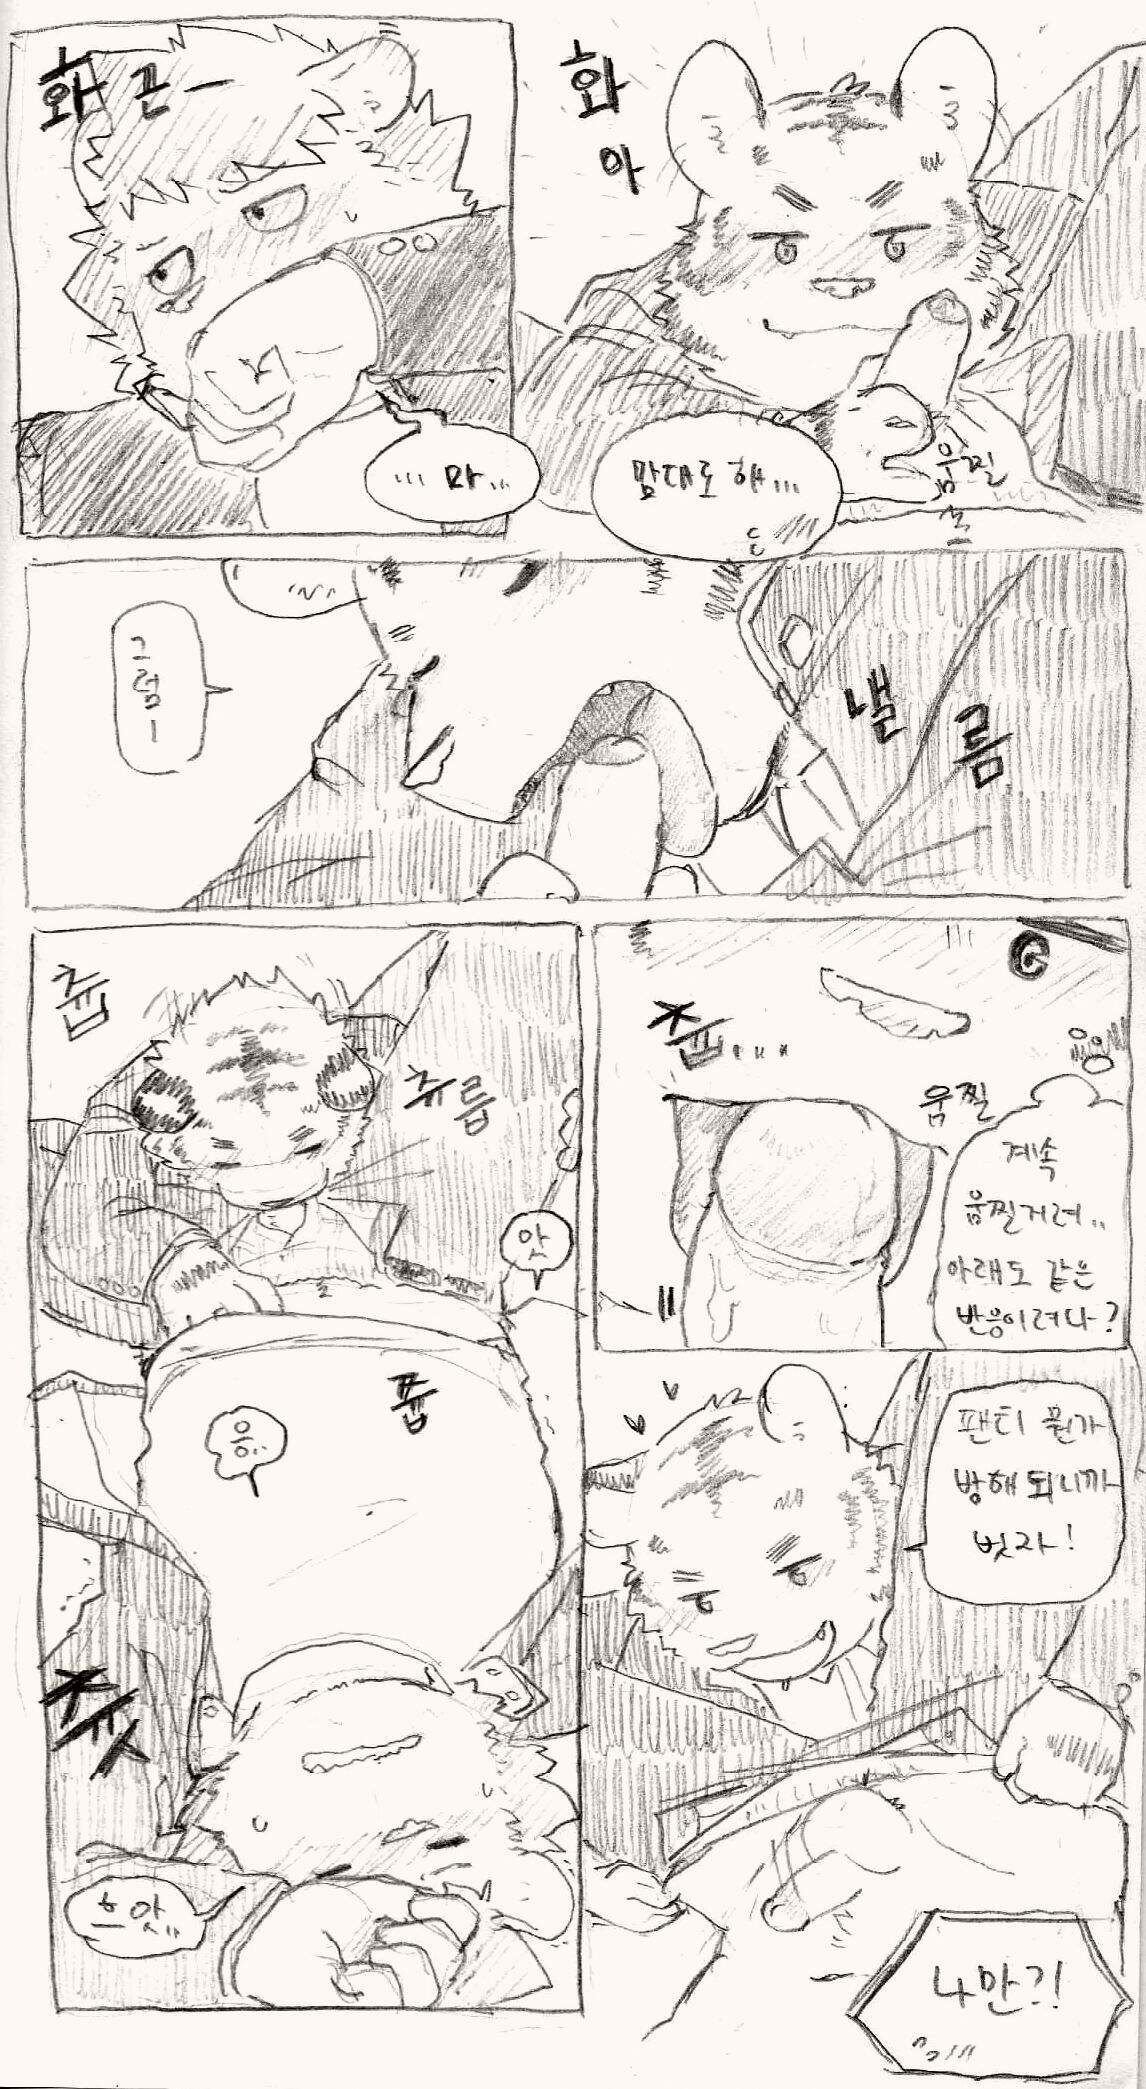 화끈ー
화
아
... 마...
맘대로 해...
움찔
그럼ー
낼
름
쥽
츄릅
앗
쭙...
움찔
계속
움찔거려..
아래도 같은
반응이려나?
응..
쭙
팬티 뭔가
방해 되니까
벗자!
쮸
흐앗..
나만?!